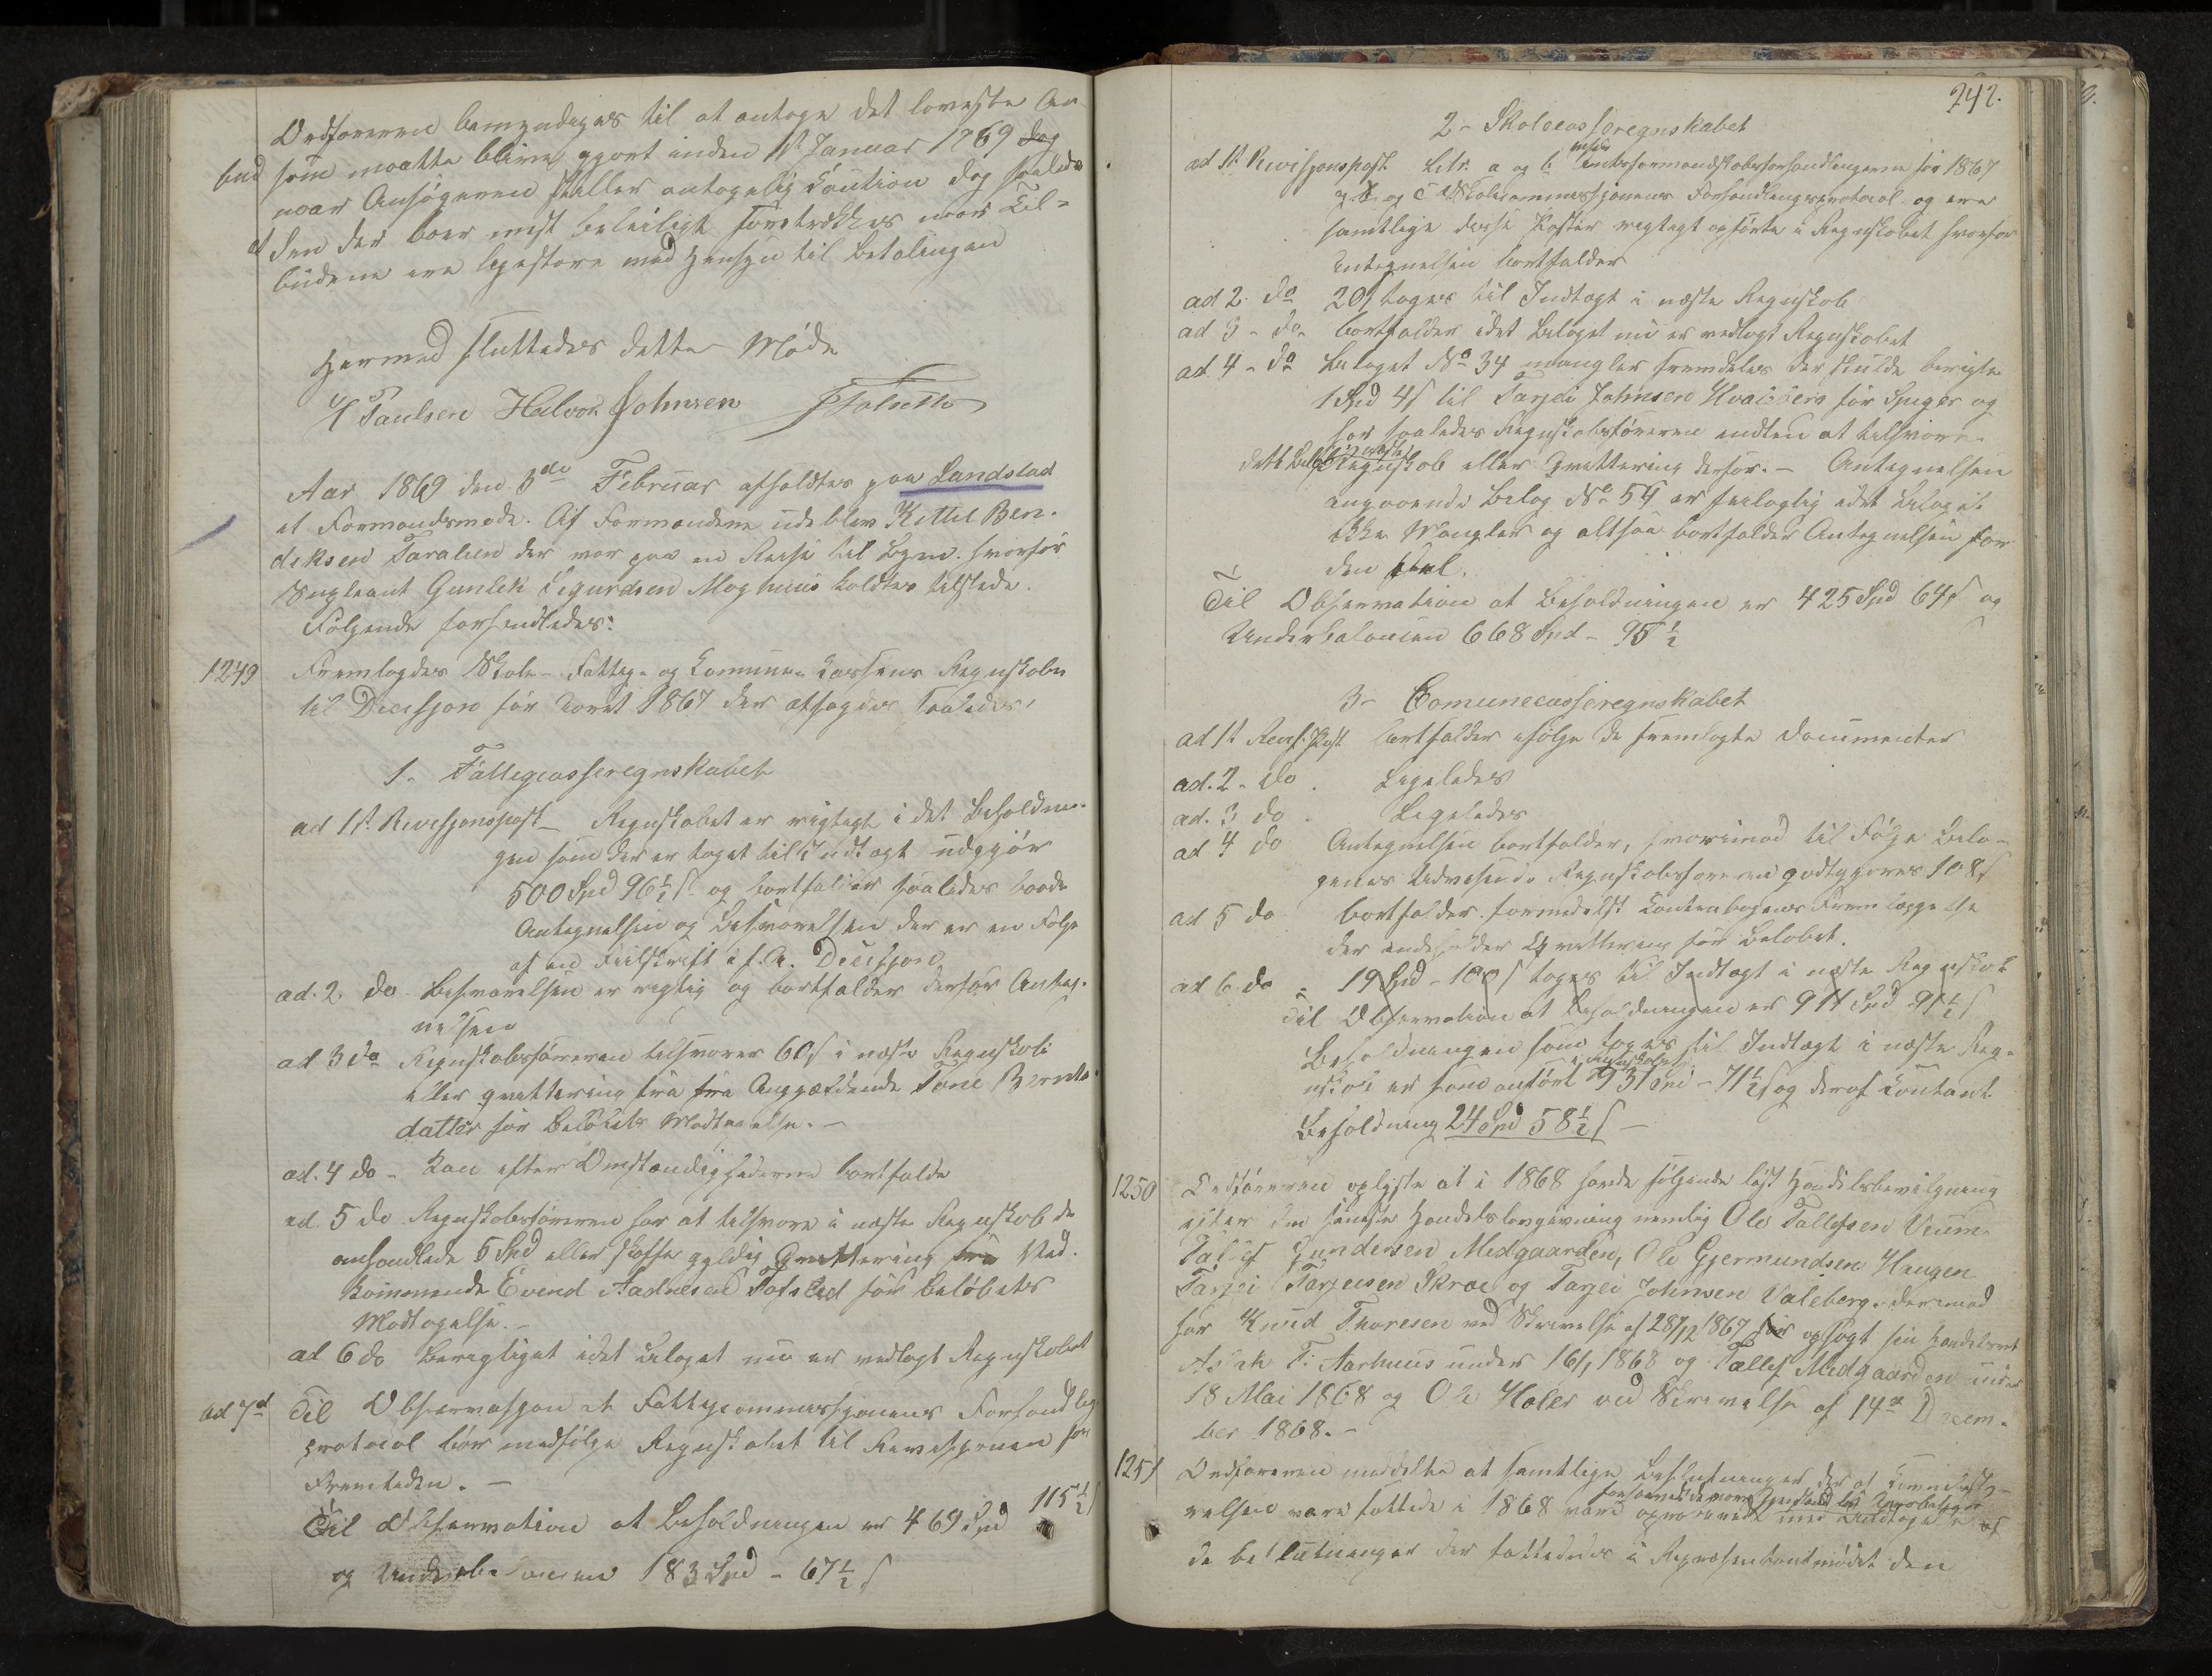 Ordføreren bemyndiges til at antage det laveste An-
bud som maatte blive gjort inden 1st Januar 1869 dog
naar Ansøgeren stiller antagelig Caution dog saaledes
at den der boer mest beleiligt foretrækkes naar Til-
budene ere ligestore med Hensyn til Betalingen
Hermed sluttedes dette Møde
Paulsen Halvor Johnsen
Aar 1869 den 3die Februar afholdtes paa Landstad
et Formandsmøde. Af Formændene udeblev Kittil Ben-
diksen Taraldsen der var paa en Reise til Byen hvorfor
Supleant Gunlek Sigurdsen Moghuus holdtes tilstede.
Følgende forhandledes:
1249 Fremlagdes Skole- Fattig- og Commune- Cassens Regnskaber
til Decisjon for Aaret 1867 der afsagdes saaledes:
1. Fattigcasseregnskabet
ad 1st Revisjonspost_ Regnskabet er rigtigt i det Beholdnin-
gen som der er taget til Indtægt udgjør
500 Spd 96½ s og bortfalder saaledes baade
Antegnelsen og Besvarelsen der er en Følge
af en Feilskrift i f. A. Decisjon.
ad. 2 do Besvarelsen er rigtig og bortfalder derfor Anteg-
nelsen
ad 3 do Regnskabsføreren tilsvarer 60 s i næste Regnskab
eller qvittering fra fra Angjældende Tone Bernts-
datter for Beløbets Modtagelse. -
ad. 4 do - Kan efter Omstændighederne bortfalde
ad 5 do Regnskabsføreren har at tilsvare i næste Regnskab de
omhandlede 5 Spd eller skaffe gyldig Qvittering fra Ved-
kommende Evind Aadnesen for Beløbets
Modtagelse. -
ad 6 do Berigtiget idet Bilaget nu er vedlagt Regnskabet
ad 7d Til Observasjon at Fattigcommissjonens Forhandlings
protocol bør medfølge Regnskabet til Revisjonen for
Fremtiden. -
Til Observation at Beholdningen er 469 Spd 115½ s
og Underbalancen 183 Spd - 67½ s
242.
2 - Skolecasseregnskabet
ad 1st Revisjonspost. Litr. a og b Amtsformandskabsforhandlingerne for 1867
og c Skolecommissjonens Forhandlingsprotocol og ere
samtlige disse Poster rigtigt opførte i Regnskabet hvorfor
Antegnelsen bortfalder
ad 2. do 20 s tages til Indtægt i næste Regnskab
ad 3 - do - bortfalder idet Bilaget nu er vedlagt Regnskabet
ad 4 - do Bilaget No 34 mangler fremdeles der skulde berigte
1 Spd 4 s til Tarjei Johnsen Hvaleberg for Spiger og
har saaledes Regnskabsføreren endten at tilsvare
dette Beløb i næste Regnskab eller Qvittering derfor. - Antegnelsen
angaaende Bilag No 54 er feilagtig idet Bilaget
ikke Mangler og altsaa bortfalder Antegnelsen for
den Deel.
Til Observation at Beholdningen er 425 Spd 64 s og
Underbalancen 668 Spd - 95½
3 - Comunecasseregnskabet
ad 1st Revis. Post bortfalder ifølge de fremlagte Documenter
ad. 2 - do . Ligeledes
ad. 3 do . Ligeledes
ad 4 do Antegnelsen bortfalder, hvorimod til Følge Bila-
genes Udvisende Regnskabsføreren godtgjøres 108 s
ad 5 do bortfalder formedelst Contrabogens Fremlæggelse
der indeholder Qvittering for Beløbet.
ad 6 do - 19 Spd - 100 s tages til Indtægt i næste Regnskab
Til Observation at Beholdningen er 911 Spd 91½ s
Beholdningen som tages til Indtægt i næste Reg-
nskab er som anført i Regnskabet 931 Spd - 71½ s og deraf Contant
Beholdning 24 Spd 58½ s -
1250 Ordføreren oplyste at i 1868 havde følgende løst Handelsbevilgning
efter den seneste Handelslovgivning nemlig Ole Tallefsen Veum
Tallef Gundersen Midgaarden, Ole Gjermundsen Haugen
Tarjei Tarjeisen Skroe og Tarjei Johnsen Valeberg. derimod
har Knud Thoresen ved Skrivelse af 28/12 1867 har opsagt sin Handelsret
Aslak T. Aarhuus under 16/1 1868 og Tallef Midgaarden under
18 Mai 1868 og Ole Høler ved Skrivelse af 14de Decem-
ber 1868. -
1251 Ordføreren meddelte at samtlige Beslutninger der af Communebesty-
relsen vare fattede i 1868 vare approberede med Undtagelse af
de beslutninger der fattedes i Repræsentantmødet den